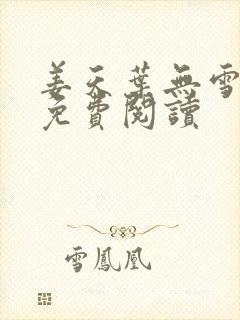 姜天葉無雪
免費閱讀
雪鳳凰